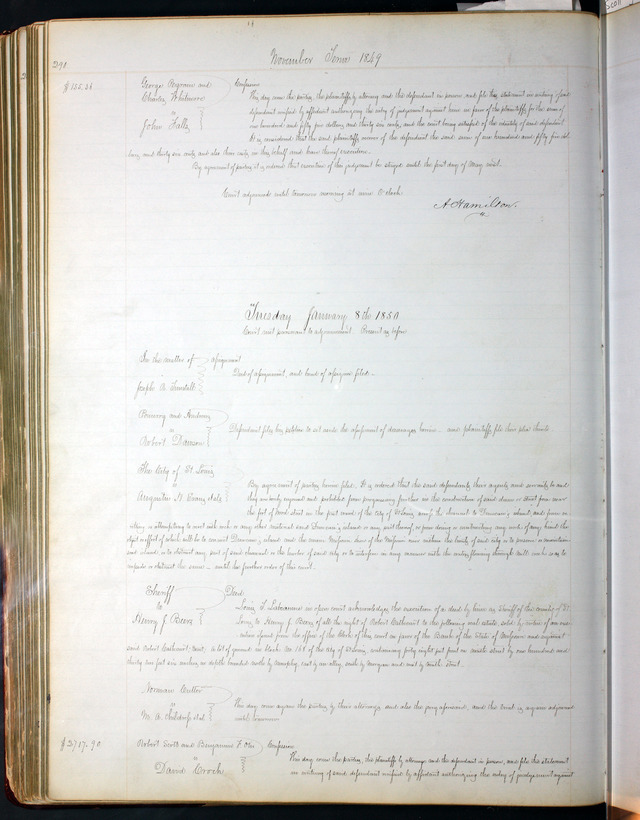 290
November Term 1849
$155.36
George Pegram and
Charles Whitmore
vs
John Falls
Confession
This day come the parties, the plaintiffs by attorney and the defendant in person and files his statement in writing of said
defendant verified by affidavit authorizing the entry of judgment against him in favor of the plaintiffs for the sum of
one hundred and fifty five dollars and thirty six cents, and the court being satisfied of the identity of said defendant
It is considered that the said plaintiffs recover of the defendant the said sum of one hundred and fifty five dol-
lars and thirty six cents and also their costs in this behalf and have thereof execution.
By agreement of parties it is ordered that execution of the judgment be stayed until the first day of May next.
Court adjourned until tomorrow morning at nine O'clock
A Hamilton.
Tuesday January 8th 1850
Court met pursuant to adjournment. Present as before
In the matter of
Joseph R. Tunstall
assignment
Deed of assignment, and bond of assignee filed.
Pomeroy and Andrews
vs
Robert Dawson
Defendant files his petition to set aside the assessment of damages herein and plaintiffs file their
The City of St. Louis
vs
H. Evans et als
By agreement of parties herein filed, It is ordered that the said defendants, their agents and servants be and
they are hereby enjoined and prohibited from progressing further in the construction of said dam or street from near
the foot of street in the first ward of the City of St Louis across the channel to Duncan's island, and from
or attempting to connect with rock or any other material said Duncan's island or any part thereof, or from doing or any work of any kind the
object or effect of which will be to connect Duncan's island and the Missouri shore of the Mississippi river within the limits of said city or to or maintain
said island, or to obstruct any part of said channel or the harbor of said city or to interfere in any manner with the water flowing through with in such way to
impede or obstruct the same until the further order of this court.
Sheriff
to
Henry J. Beers
Deed
Louis T. Labeaume in open court acknowledges the execution of a deed by him as Sheriff of the county of St
Louis to Henry J. Beers of all the right of Robert Cathcart to the following real estate, sold by virtue of an exe-
cution issued from the office of the Clerk of this court in favor of the Bank of the State of Missouri and against
said Robert Cathcart, A lot of ground in block No. 168 of the city of St Louis, containing forty eight feet front on street by one hundred and
thirty two feet six inches in depth bounded north by Murphy, east by an alley, south by and west by street.
Norman Cutter
vs
M. A. Childress et al
This day come again the parties by their attorneys and also the jury aforesaid, and the trial is again adjourned
until tomorrow
$3717.90
Robert Scott and Benjamin F. Oli
vs
David Crooks
Confession
This day come the parties, the plaintiffs by attorney and the defendant in person, and files the statement
in writing of said defendant verified by affidavit authorizing the entry of judgment against